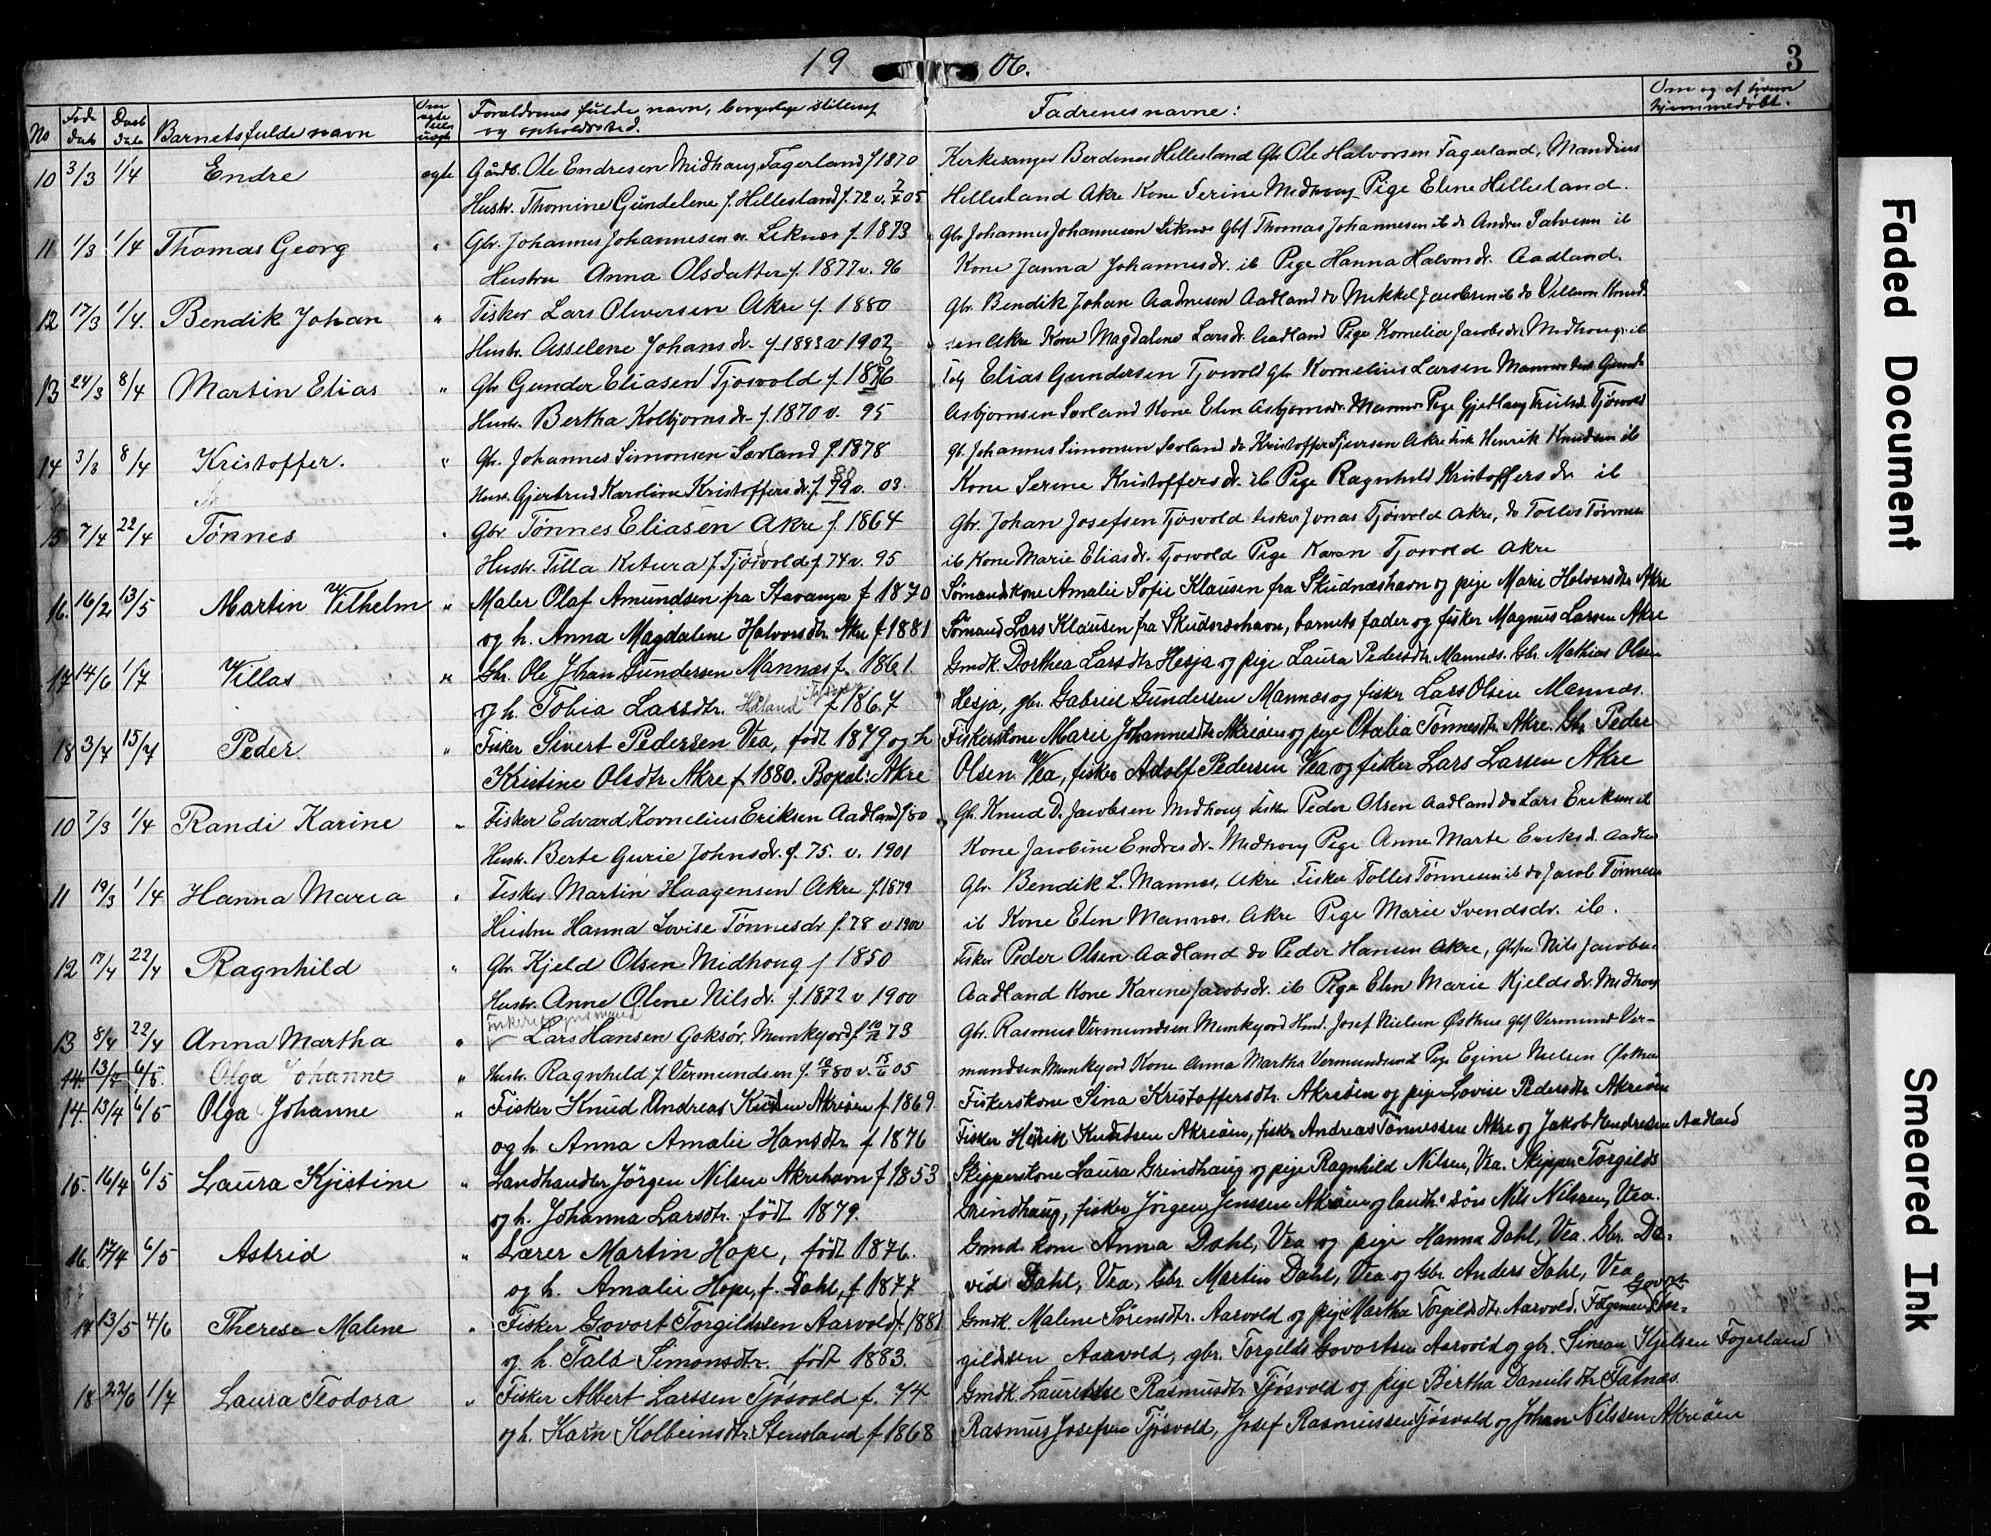 19 06. 3
No Født dato Døbt dato Barnets fulde navn Om ægte eller uægte Forældrenes fulde navn, borgerlige stilling og opholdssted. Fadrenes navne: Om og af hvem hjemmedøbt.
10 3/3 1/4 Endre ægte Gårdb. Ole Endresen Midhaug Fagerland f 1870 Kirkesanger Berdenes Hillesland Gbr Ole Halvorsen Fagerland, Mandius
Hustr. Thomine Gundelene f. Hillesland f. 72 v. 7/7 05 Hillesland Akre Kone Serine Midhoug Pige Elene Hillesland.
11 1/3 1/4 Thomas Georg " Gbr. Johannes Johannesen n. Liknes f. 1873 Gbr Johannes Johannesen Liknes Gbf Thomas Johannesen ib do Andreas Salvesen ib
Hustru Anna Olsdatter f. 1877 v. 96 Kone Janna Johannesdr. ib Pige Hanna Halvorsdr. Aadland.
12 17/3 1/4. Bendik Johan " Fisker Lars Oliversen Akre f. 1880 Gbr. Bendik Johan Aadnesen Aadland do Mikkel Jacobsen ib do Villum Knud-
Hustr. Asselene Johansdr. f. 1883 v 1902 sen Akre Kone Magdalene Larsdr. Aadland Pige Kornelia Jacobsdr. Midhoug ib
13 24/3 8/4 Martin Elias " Gbr Gunder Eliasen Tjosvold f. 1876 Følg Elias Gundersen Tjosvold Gbr Kornelius Larsen Mannes
Hustr. Bertha Kolbjornsdr f. 1870 v. 95 Asbjørnsen Sørland Kone Elen Asbjornsdr. Mannes Pige Gjetlaug Trulsd. Tjösvold
14 3/3 8/4 Kristoffer. " Gbr. Johannes Simonsen Sævland f. 1878 Gb. Johannes Simonsen Sævland do Kristoffer Sjursen Akre Fisk Henrik Knudsen ib
Hustr. Gjertrud Karoline Kristoffersdr. f. 79 80 v. 03. Kone Serine Kristoffersdr. ib Pige Ragnhild Kristoffersdr ib
15 7/4 22/4 Tønnes " Gbr Tønnes Eliasen Akre f. 1864 Gbr. Johan Josefsen Tjösvold fisker Jonas Tjösvold Akre, do Tolles Tønnes
Hustr. Tilla Ketura f. Tjösvold f. 74 v. 95 ib Kone Marie Eliasdr. Tjosvold Pige Karen Tjosvold Akre
16. 16/2 13/5 Martin Vilhelm " Maler Olaf Amundsen fra Stavanger f 1870 Sömandskone Amalie Sofie Klausen fra Skudneshavn og pige Marie Halvorsdtr Akre
og h. Anna Magdalene Halvorsdtr. Akre f 1881 Sömand Lars Klausen fra Skudneshavn, barnets fader og fisker Magnus Larsen Akre
17 14/6 1/7 Villas " Gbr. Ole Johan Gundersen Mannæs f. 1861. Gmdk. Dorthea Larsdtr Hesja og pige Laura Pedersdtr Mannæs. Gbr. Mathias Olsen
og h. Tobia Larsdtr. Håland f 1867 Hesja, gbr. Gabriel Gundersen Mannæs og fisker Lars Olsen Mannæs.
18 3/7 15/7 Peder. " Fisker Sivert Pedersen Vea, født 1879 og h Fiskerskone Marie Johannesdtr Akreøen og pige Otalia Tönnesdtr Akre. Gbr. Peder
Kristine Olsdtr Akre f 1880. Bopæl: Akre Olsen Vea, fisker Adolf Pedersen Vea og fisker Lars Larsen Akre
10 7/3 1/4 Randi Karine " Fisker Edvard Kornelius Eriksen Aadland f 80 Gb. Knud D. Jacobsen Midhoug fisker Peder Olsen Aadland do Lars Eriksen ib
Hustr. Berte Gurie Johnsdr. f. 75. v. 1901 Kone Jacobine Endresdr. Midhoug Pige Anne Marte Eriksd. Aadla
11 19/3 1/4 Hanna Maria " Fisker Martin Haagensen Akre f. 1879 Gbr. Bendik L. Mannes, Akre Fisker Tolles Tønnesen ib do Jacob Tønnesen
Hustru Hanna Lovise Tønnesdr f. 78 v 1900 ib Kone Elen Mannes. Akre Pige Marie Svendsdr. ib.
12 17/4 22/4 Ragnhild " Gbr. Kjeld Olsen Midhoug f 1850 Fisker Peder Olsen Aadland do Peder Hansen Akre, Nils Jacobsen
Hustr. Anne Olene Nilsdr. f. 1872 v 1900 Aadland Kone Karine Jacobsdr. ib Pige Elen Marie Kjeldsdr. Midhoug
13 8/4 22/4 Anna Martha " Lars Hansen Goksør, Munkejord f 10/12 73 Gbr. Rasmus Vermundsen Munkejord Josef Nielsen Østhus gbf Vermund Ver-
14. 13/4 6/5. Olga Johanne " Hustr. Ragnhild f. Vermundsen f. 80 v. 15/6 05 mundsen Munkejord Kone Anna Martha Vermundsen Pige Egine Nielsen Østhus
14. 13/4 6/5 Olga Johanne " Fisker Knud Andreas Knudsen Akreøen f 1869. Fiskerskone Sina Kristoffersdtr. Akreøen og pige Lovise Pedersdtr Akreøen
og h. Anna Amalie Hansdtr. f 1876 Fisker Henrik Knudsen Akreøen, fisker Andreas Tønnessen Akre og Jakob Hendresen Aadland
15. 16/4 6/5 Laura Kjistine " Landhandler Jörgen Nilsen Akrehavn f 1853 Skipperskone Laura Grindhaug og pige Ragnhild Nilsen, Vea. Skipper Torgilds
og h. Johanna Larsdtr. født 1879. Grindhaug, fisker Jörgen Jenssen Akreøen og landh. søn Nils Nilsen, Vea.
16. 17/4 6/5 Astrid " Lærer Martin Hope, født 1876. Gmd kone Anna Dahl, Vea og pige Hanna Dahl, Vea. Gbr. Da-
og h. Amalie Hope, f. Dahl, f 1877 vid Dahl, Vea, Gbr. Martin Dahl, Vea og Gbr. Anders Dahl, Vea
17 13/5 4/6 Therese Malene " Fisker Govort Torgildsen Aarvold f. 1881 Gmdk. Malene Sörensdtr. Aarvold og pige Martha Torgildsdtr Aarvold. Følgemand Govort Tor-
og h. Tala Simonsdtr. født 1883. gildsen Aarvold, gbr. Torgilds Govortsen Aarvold og gbr. Simon Kjelsen Fagerland
18 22/6 1/7 Laura Teodora " Fisker Albert Larssen Tjösvold f. 74 Gmdk. Lauretse Rasmusdtr. Tjösvold og pige Bertha Danielsdtr Falnæs.
og h. Karn Kolbeinsdtr. Stensland f 1868 Rasmus Josefsen Tjösvold, Josef Rasmussen Tjösvold og Johan Nilssen Akreøen
Faded Document
Smeared Ink